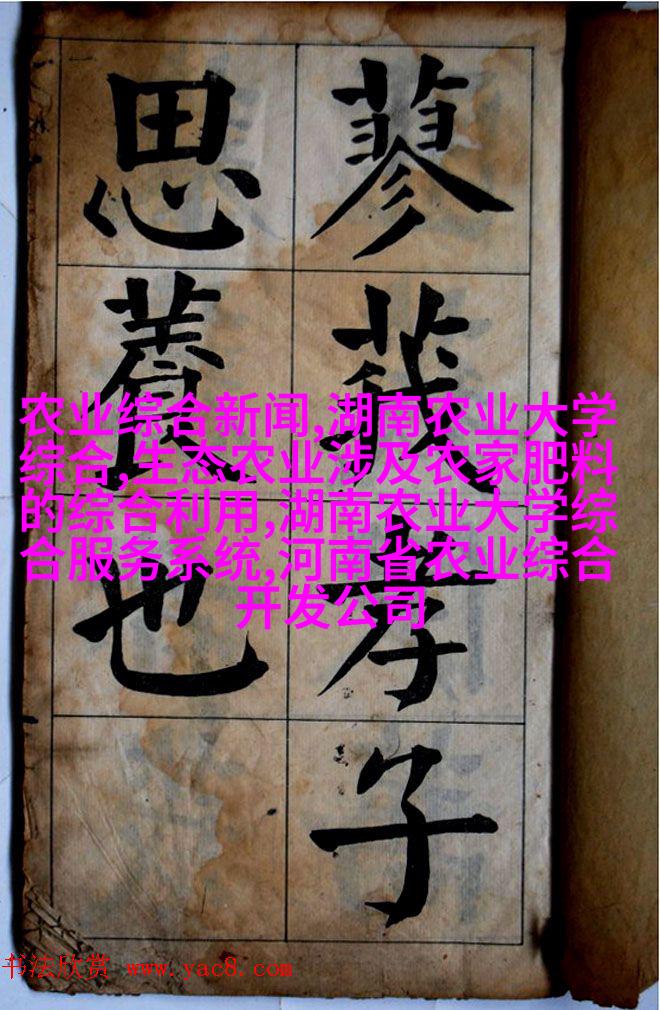 蓼莪孝子
思養也
农业综合新闻,湖南农业大学
综合,生态农业涉及农家肥料
的综合利用,湖南农业大学综
合服务系统,河南省农业综合
开发公司
书法欣赏 www.yac8.com